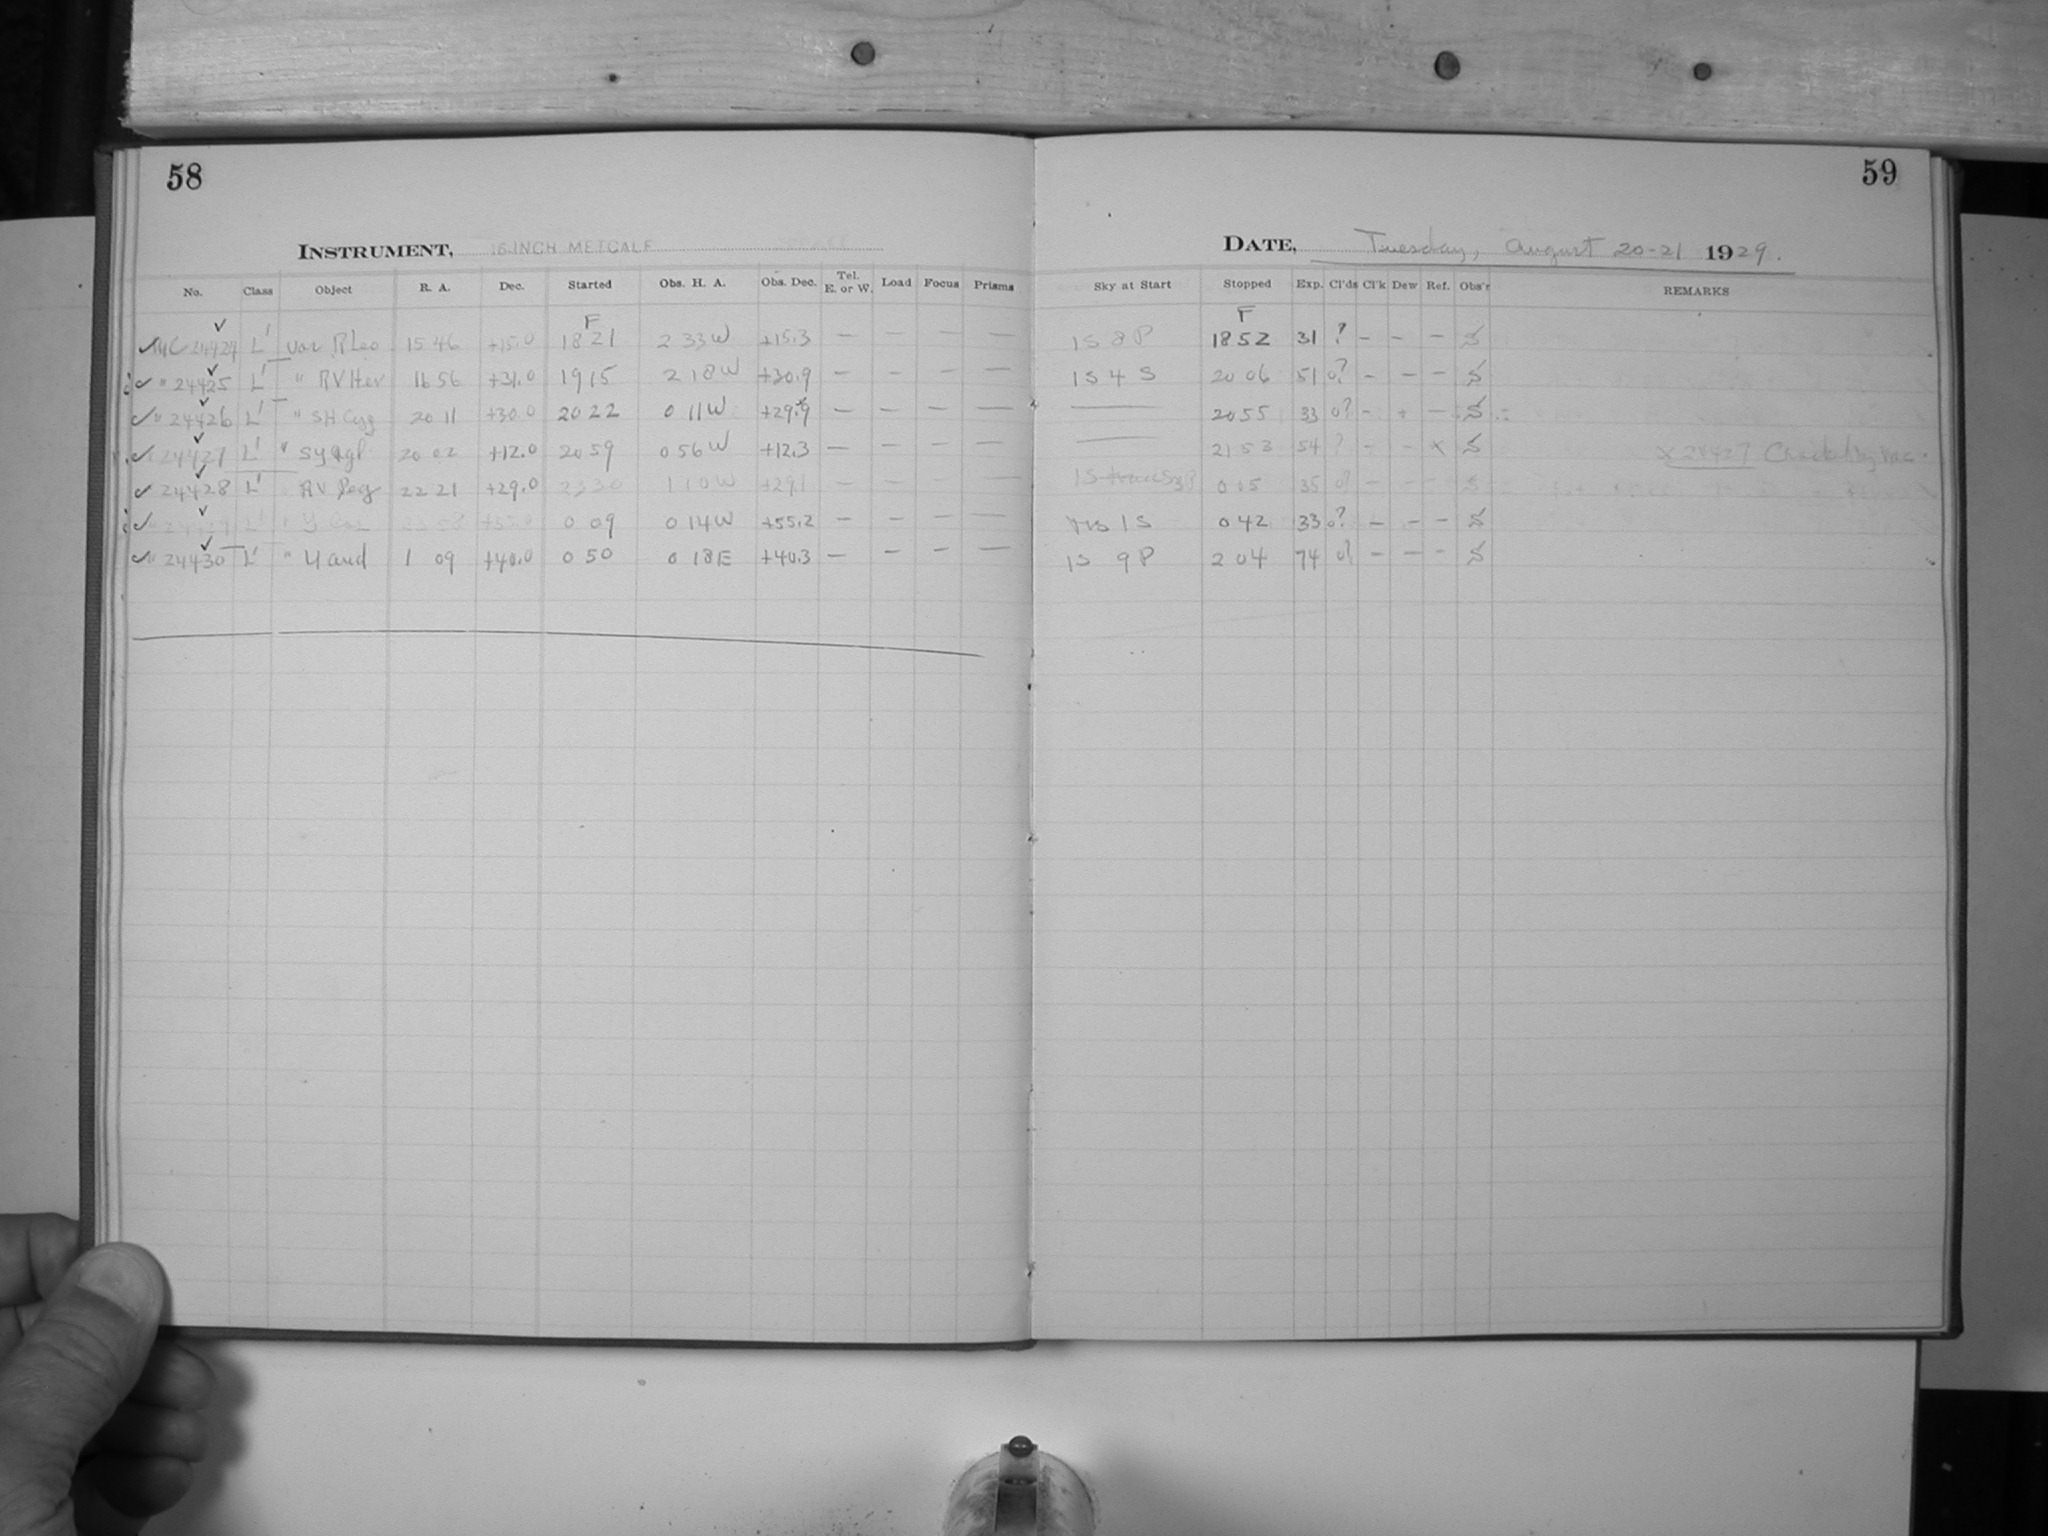 58
INSTRUMENT, 16-INCH METCALF
No. Class Object R. A. Dec. Started Obs. H. A. Obs. Dec. Tel. E. or W. Load Focus Prisms
F
✓ MC 24424 L' var R Leo 15 46 +15.0 18 21 2 33 W +15.3 — — — —
✓ " 24425 L' " RV Her 16 56 +31.0 19 15 2 18 W +30.9 — — — —
✓ " 24426 L' " SH Cyg 20 11 +30.0 20 22 0 11 W +29.9 — — — —
✓ " 24427 L' " SY Aql 20 02 +12.0 20 59 0 56 W +12.3 — — — —
✓ 24428 L' RV Peg 22 21 +29.0 23 30 1 10 W +29.1 — — — —
✓ L' " Y Cas 0 09 0 14 W +55.2 — — — —
✓ " 24430 L' " Y and 1 09 +40.0 0 50 0 18 E +40.3 — — — —
59
DATE, Tuesday, August 20-21 1929.
Sky at Start Stopped Exp. Cl'ds Cl'k Dew Ref. Obs'r REMARKS
F
1S 8P 18 52 31 ? – – –
1S 4 S 20 06 51 0? – – –
— 20 55 33 0? – + –
— 21 53 54 ? – – x x 24427 Checked by Vac.
1S 0 05 35 0? – – –
1S 0 42 33 0? – – –
1S 9P 2 04 74 0? – – –